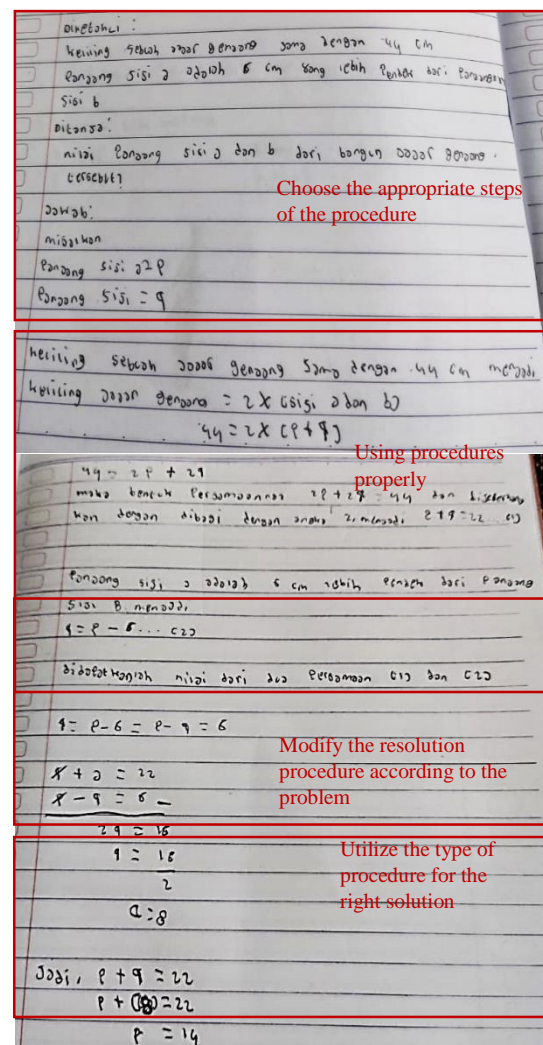 Diketahui :
Keliling sebuah jajar genjang sama dengan 44 cm
Panjang sisi a adalah 6 cm yang lebih pendek dari panjang
sisi b
Ditanya :
nilai panjang sisi a dan b dari bangun jajar genjang
tersebut?
Choose the appropriate steps
of the procedure
Jawab :
misalkan
Panjang sisi a = P
Panjang sisi = q
Keliling sebuah jajar genjang sama dengan 44 cm menjadi
Keliling jajar genjang = 2 x (sisi a dan b)
44 = 2 x (P + q)
Using procedures
properly
44 = 2P + 2q
maka bentuk persamaannya 2P + 2q = 44 dan
kan dengan dibagi dengan angka 2, menjadi P + q = 22 (1)
Panjang sisi a adalah 6 cm lebih pendek dari panjang
sisi B menjadi
q = P - 6 ... (2)
didapatkanlah nilai dari dua persamaan (1) dan (2)
q = P - 6 = P - q = 6
Modify the resolution
procedure according to the
problem
x + 2 = 22
x - q = 6 -
2q = 16
q = 16
2
q = 8
Utilize the type of
procedure for the
right solution
Jadi, P + q = 22
P + (8) = 22
P = 14